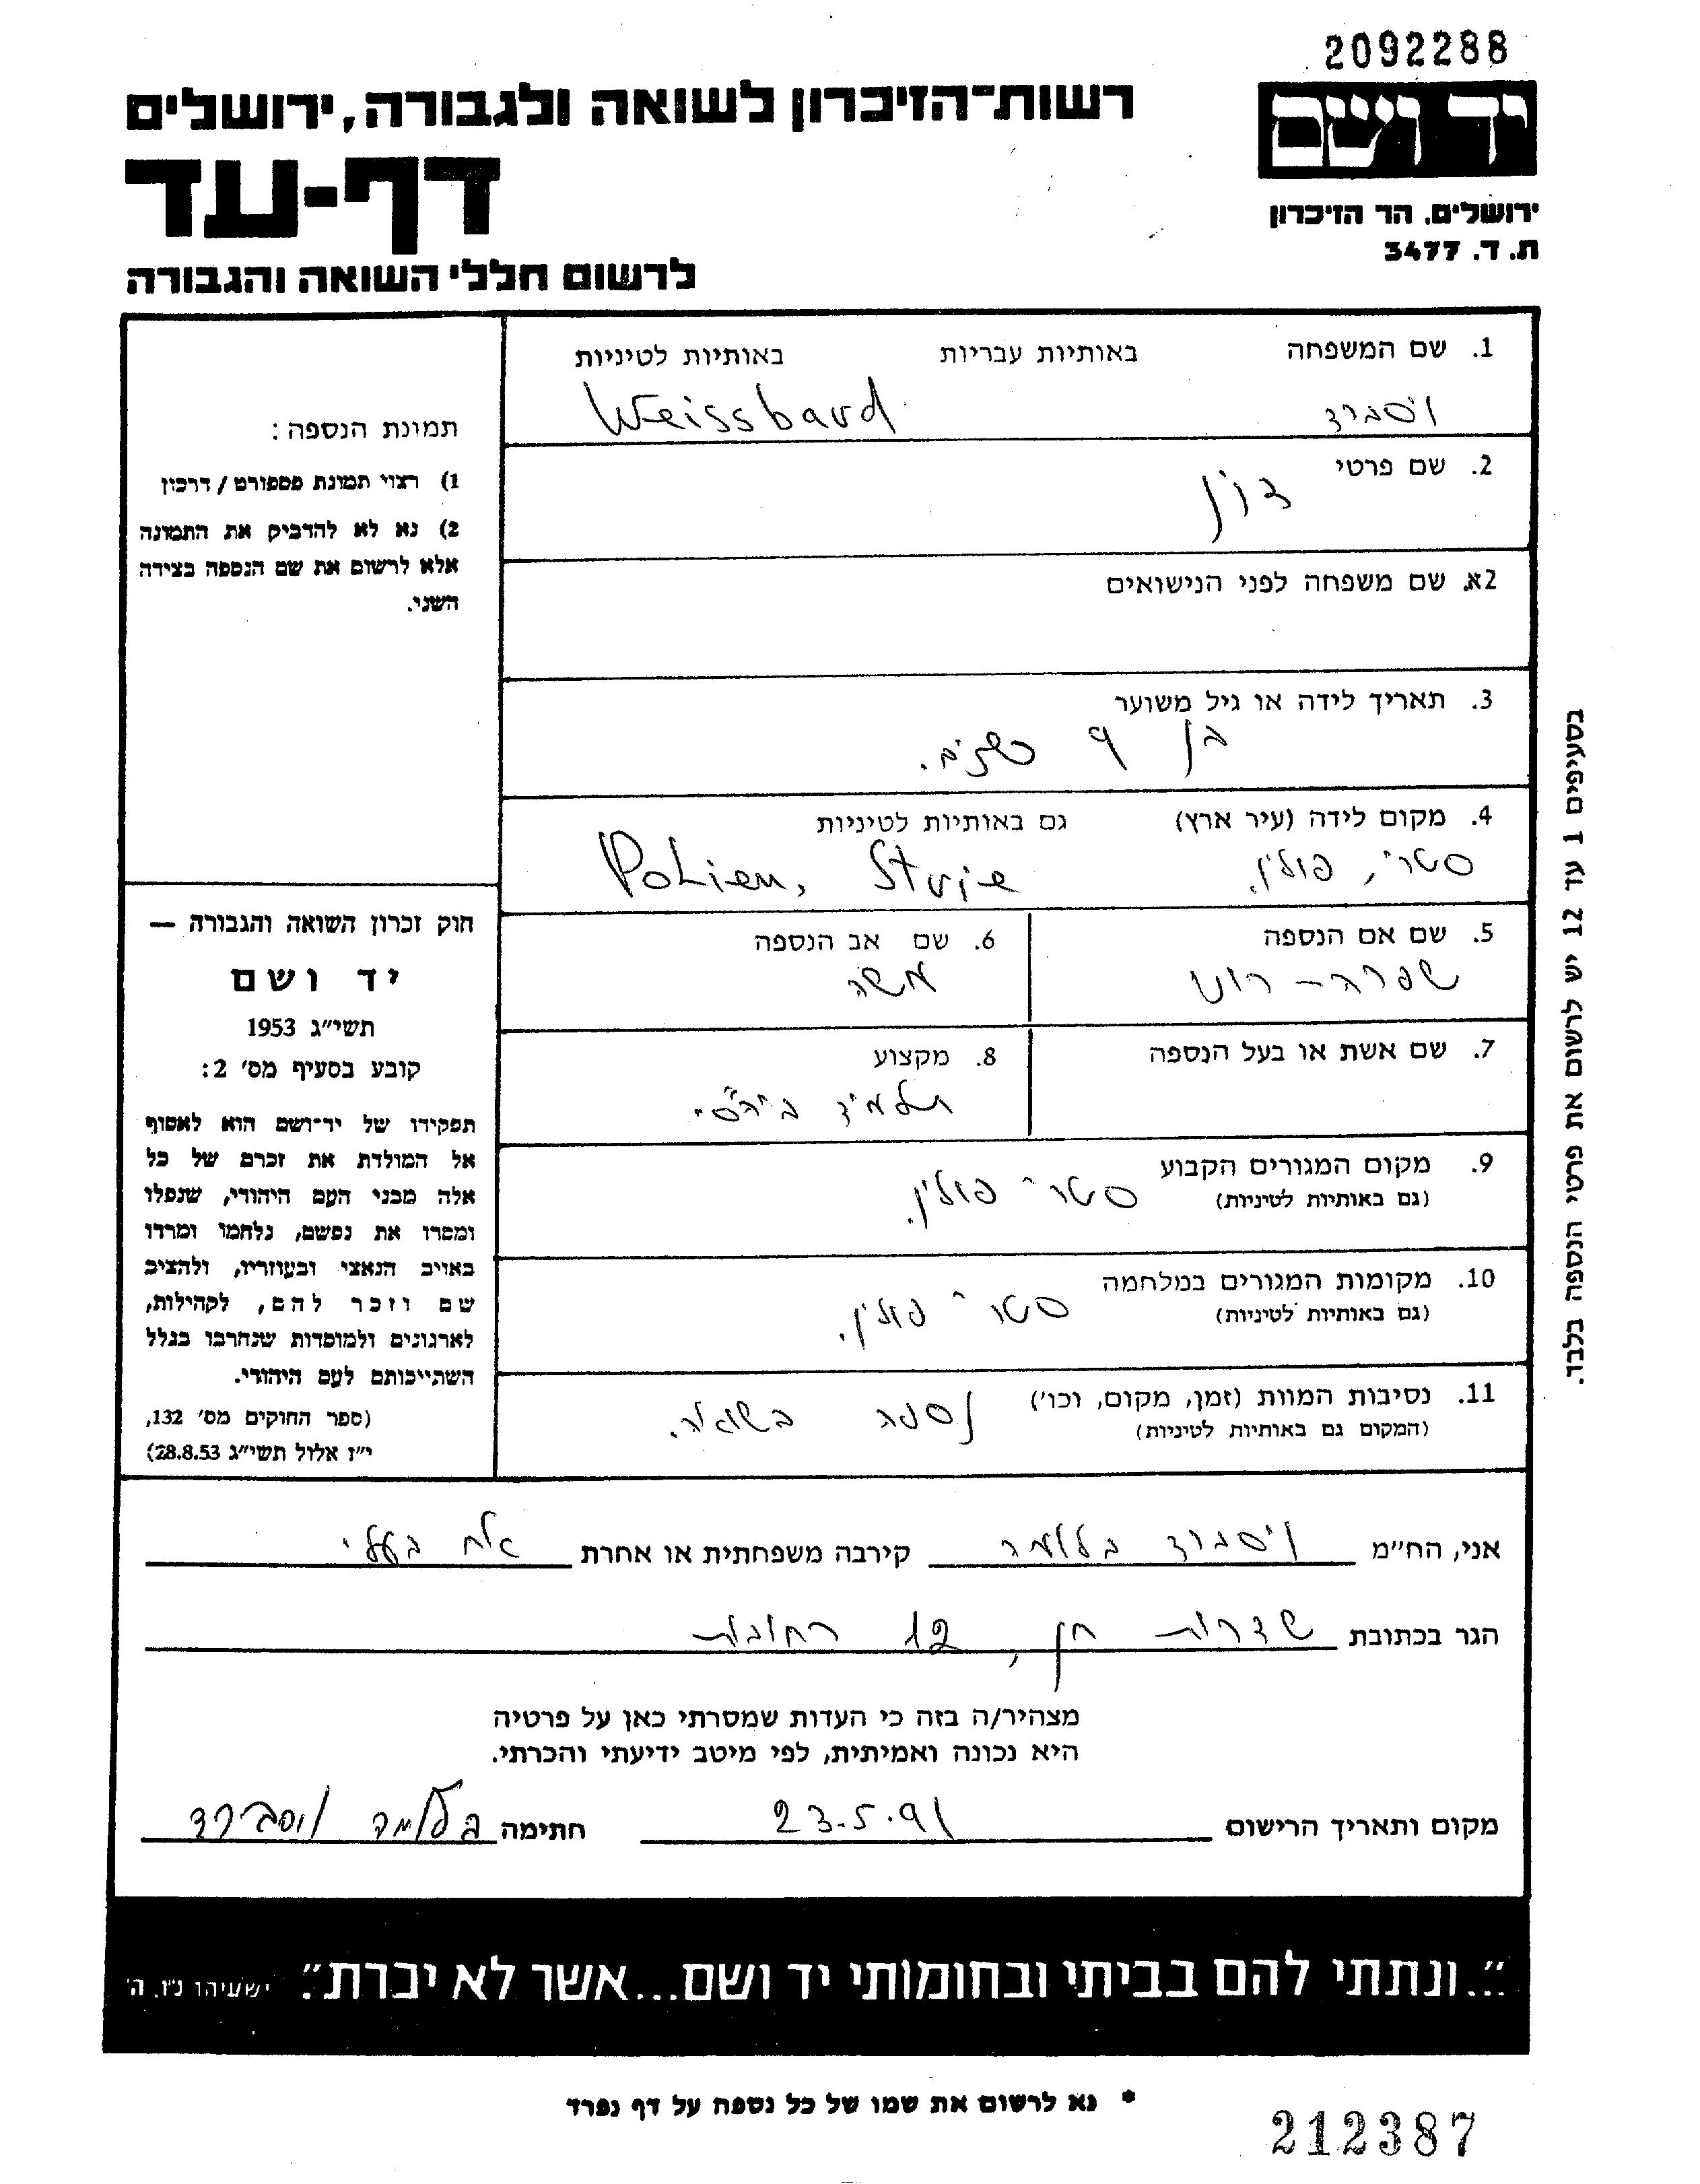 2092288
יד ושם
רשות־הזיכרון לשואה ולגבורה, ירושלים
דף-עד
ירושלים. הר הזיכרון
ת. ד. 3477
לרשום חללי השואה והגבורה
1. שם המשפחה באותיות עבריות באותיות לטיניות
ויסברד Weissbard
2. שם פרטי
2א. שם משפחה לפני הנישואים
3. תאריך לידה או גיל משוער
בן 9 שנים.
4. מקום לידה (עיר ארץ) גם באותיות לטיניות
סטרי, פולין. Polien, Strje
5. שם אם הנספה
שפרה - רוט
6. שם אב הנספה
משה
7. שם אשת או בעל הנספה
8. מקצוע
תלמיד ביה"ס.
9. מקום המגורים הקבוע
(גם באותיות לטיניות)
סטרי פולין.
10. מקומות המגורים במלחמה
(גם באותיות לטיניות)
סטרי פולין.
11. נסיבות המוות (זמן, מקום, וכו')
(המקום גם באותיות לטיניות)
נספה בשואה.
תמונת הנספה:
1) רצוי תמונת פספורט / דרכון
2) נא לא להדביק את התמונה
אלא לרשום את שם הנספה בצידה
השני.
חוק זכרון השואה והגבורה —
יד ושם
תשי"ג 1953
קובע בסעיף מס' 2:
תפקידו של יד־ושם הוא לאסוף
אל המולדת את זכרם של כל
אלה מבני העם היהודי, שנפלו
ומסרו את נפשם, נלחמו ומרדו
באויב הנאצי ובעוזריו, ולהציב
שם וזכר להם, לקהילות,
לארגונים ולמוסדות שנחרבו בגלל
השתייכותם לעם היהודי.
(ספר החוקים מס' 132,
י"ז אלול תשי"ג 28.8.53)
בסעיפים 1 עד 12 יש לרשום את פרטי הנספה בלבד.
אני, הח"מ ויסברד קירבה משפחתית או אחרת אח בעלי
הגר בכתובת שדרות חן, 12 רחובות
מצהיר/ה בזה כי העדות שמסרתי כאן על פרטיה
היא נכונה ואמיתית, לפי מיטב ידיעתי והכרתי.
מקום ותאריך הרישום 23.5.91 חתימה ויסברד
"...ונתתי להם בביתי ובחומותי יד ושם...אשר לא יכרת". ישעיהו נ"ו. ה'
* נא לרשום את שמו של כל נספה על דף נפרד
212387